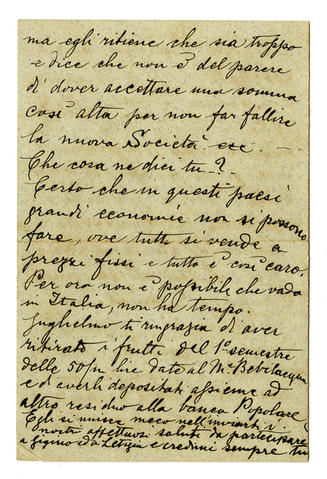 ma egli ritiene che sia troppo
e dice che non è del parere
di dover accettare una somma
così alta per non far fallire
la nuova Società ecc —
Che cosa ne dici tu?
Certo che in questi paesi
grandi economie non si possono
fare, ove tutto si vende a
prezzi fissi e tutto è così caro.
Per ora non è possibile che vada
in Italia, non ha tempo.
Guglielmo ti ringrazia di aver
ritirato i frutti del 1° semestre
delle 50/m lire date al Mse Bevilacqua
ed averli depositati assieme ad
altro residuo alla banca Popolare
Egli si unisce meco nell'inviarti i
nostri affettuosi saluti da partecipare
a Gigino ed a Letizia e credimi sempre tu